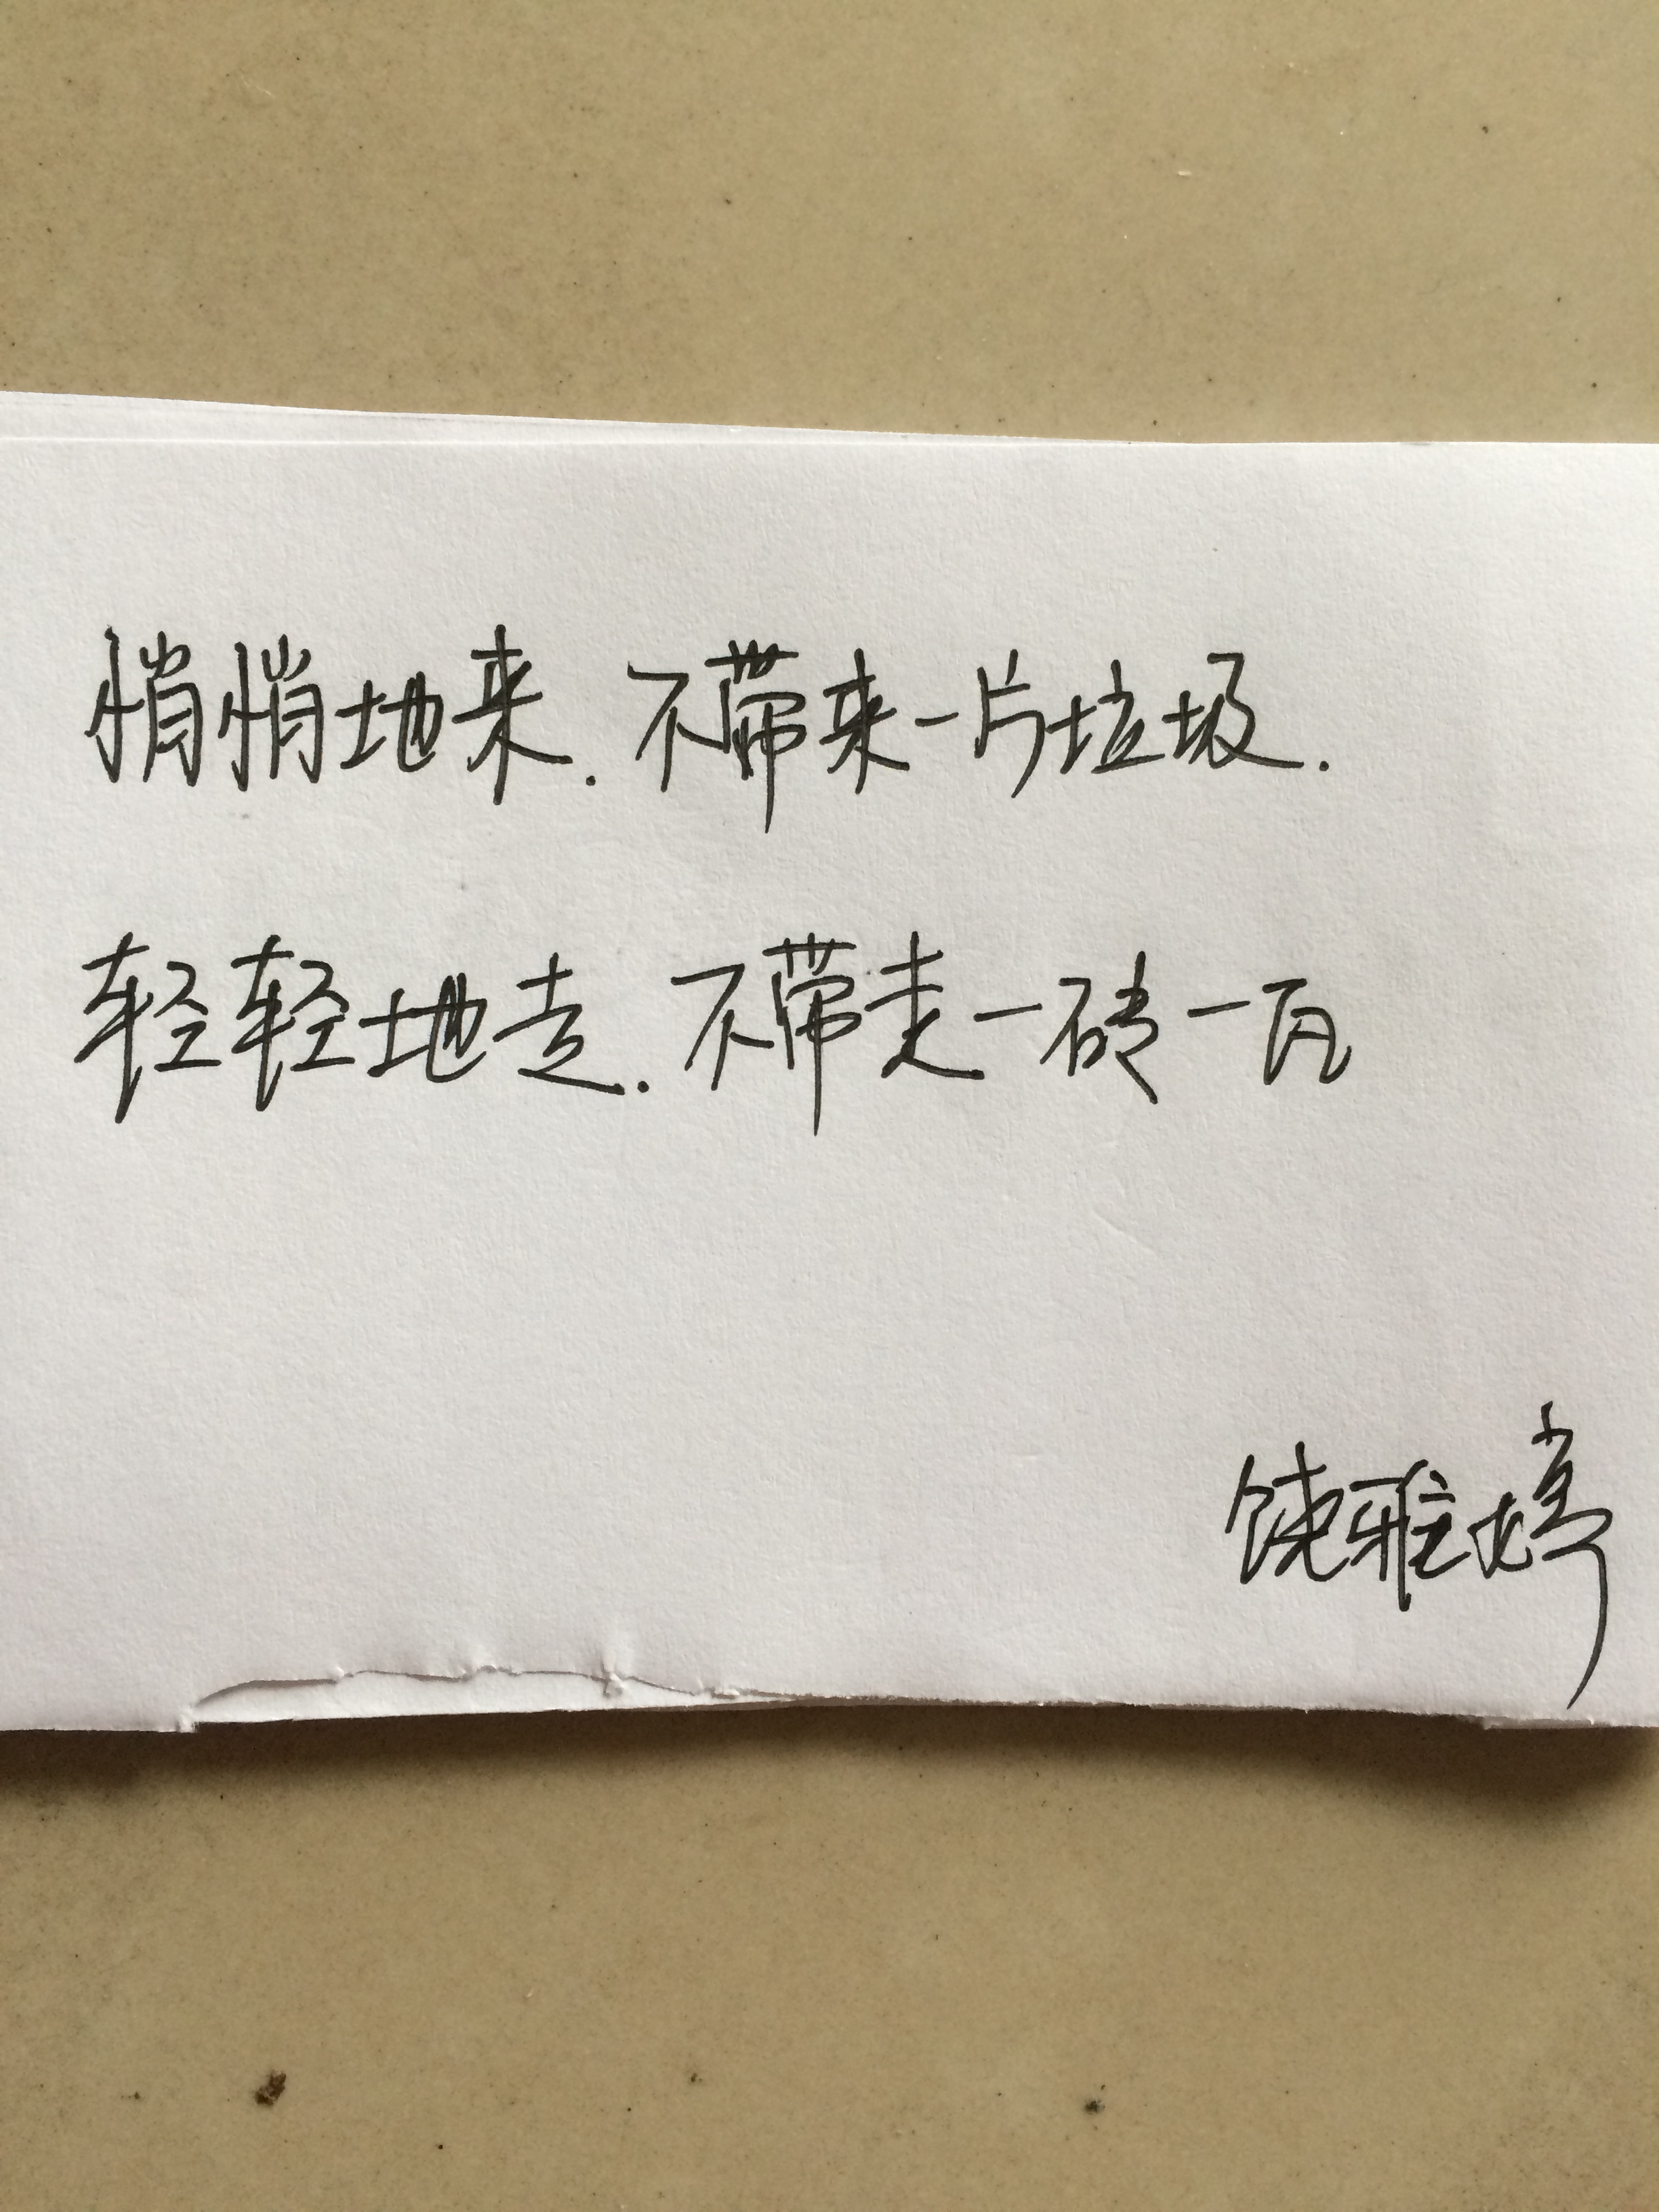 悄悄地来.不带来一片垃圾.
轻轻地走.不带走一砖一瓦
饶雅婷